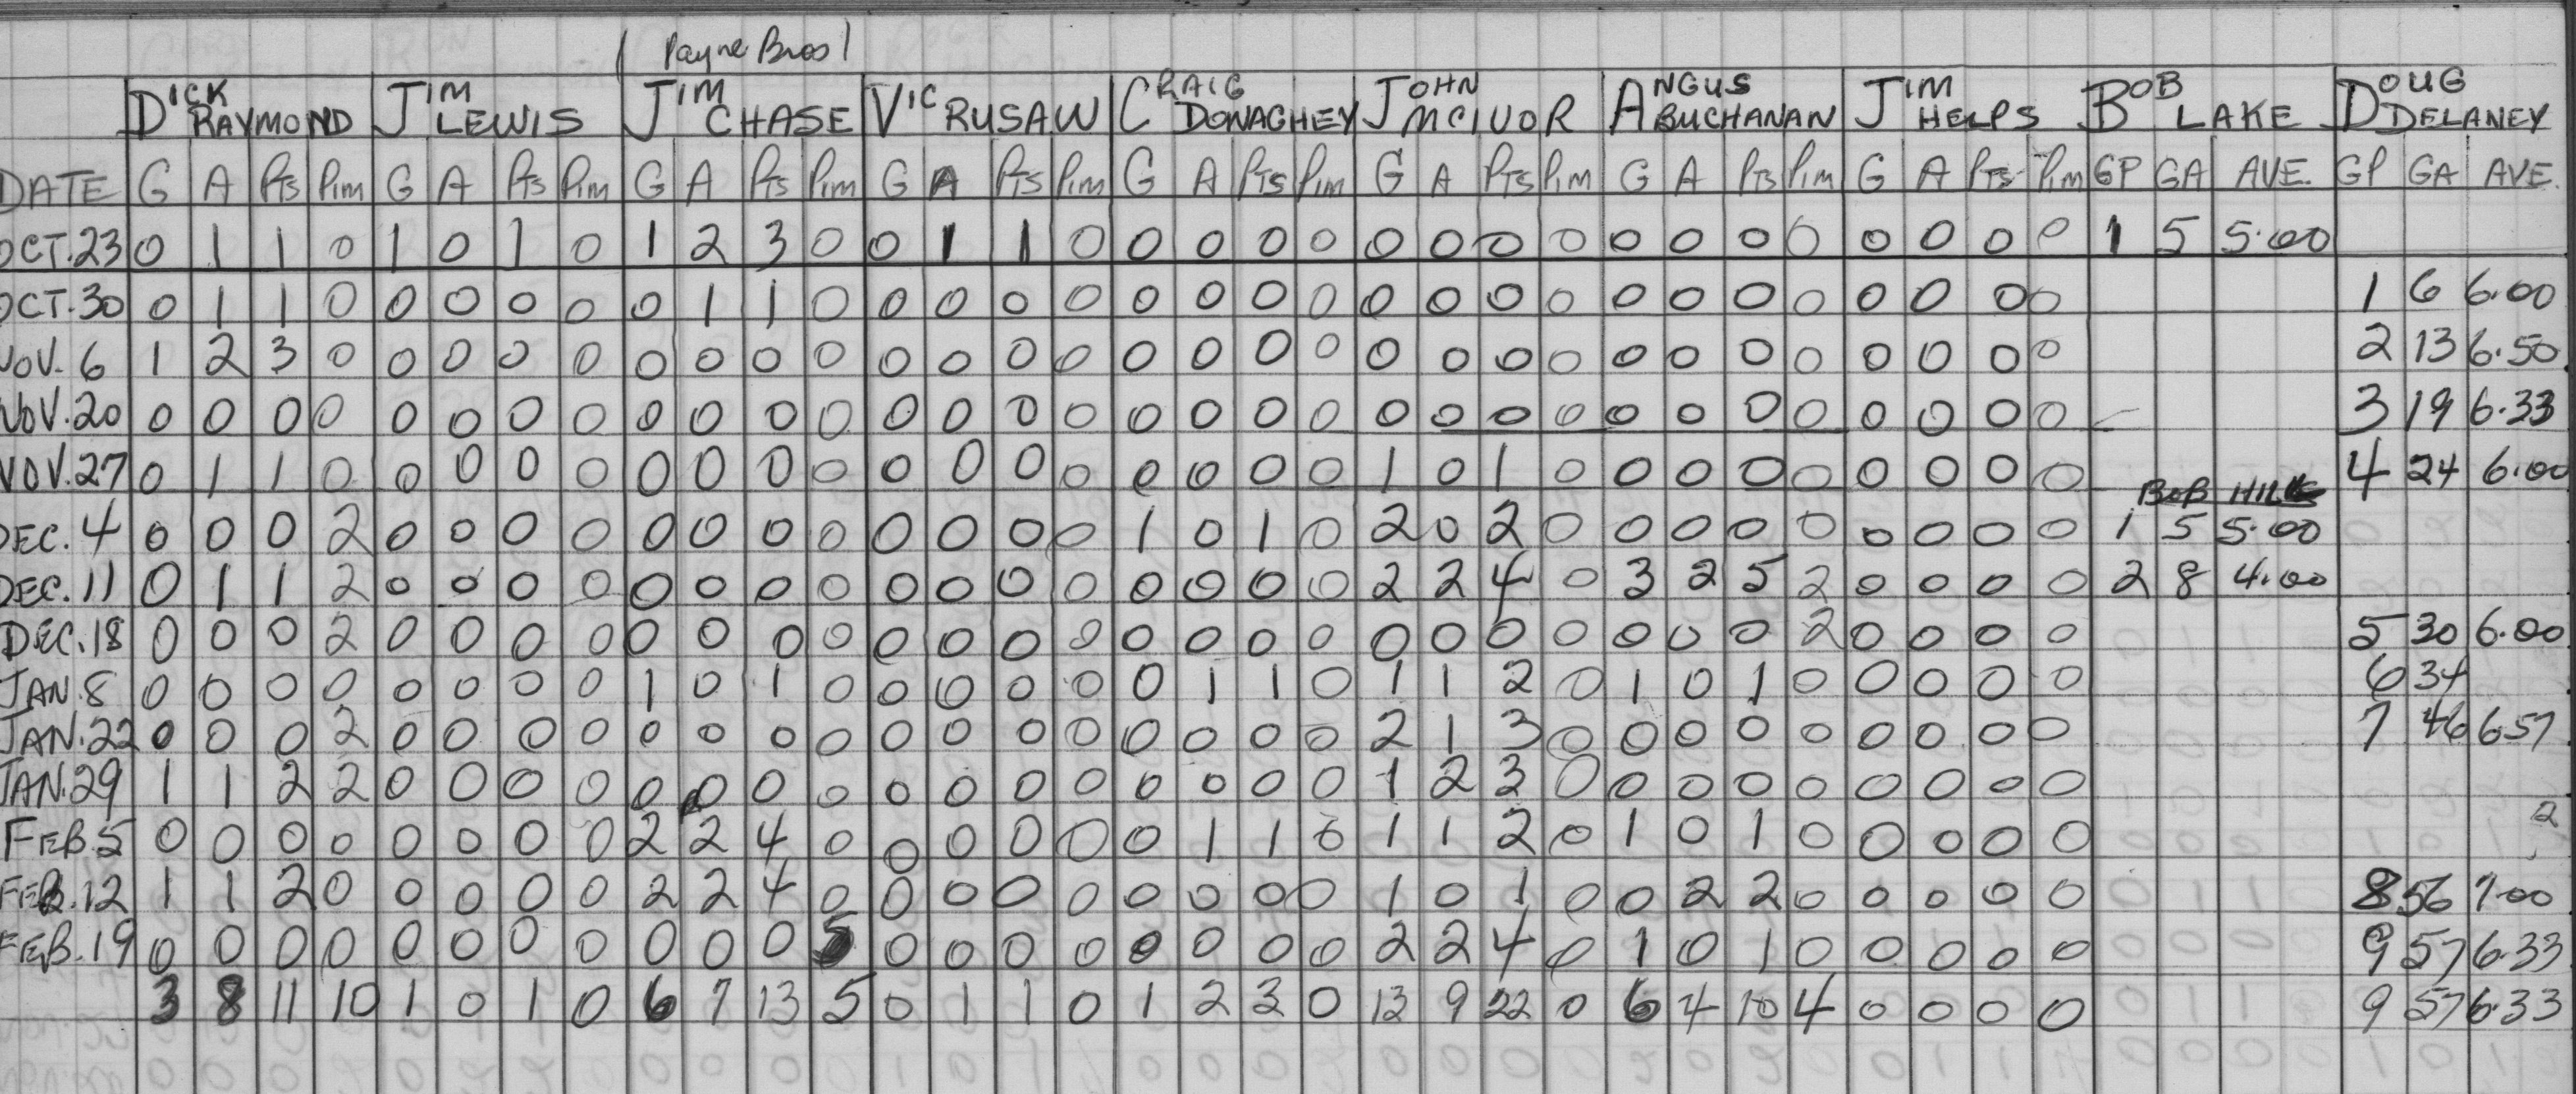 ( Payne Bros )
DICK RAYMOND JIM LEWIS JIM CHASE VIC RUSAW CRAIG DONAGHEY JOHN MCIVOR ANGUS BUCHANAN JIM HELPS BOB LAKE DOUG DELANEY
DATE G A Pts Pim G A Pts Pim G A Pts Pim G A Pts Pim G A Pts Pim G A Pts Pim G A Pts Pim G A Pts Pim GP GA AVE. GP GA AVE.
OCT.23 0 1 1 0 1 0 1 0 1 2 3 0 0 1 1 0 0 0 0 0 0 0 0 0 0 0 0 0 0 0 0 0 1 5 5.00
OCT.30 0 1 1 0 0 0 0 0 0 1 1 0 0 0 0 0 0 0 0 0 0 0 0 0 0 0 0 0 0 0 0 0 1 6 6.00
NOV. 6 1 2 3 0 0 0 0 0 0 0 0 0 0 0 0 0 0 0 0 0 0 0 0 0 0 0 0 0 0 0 0 0 2 13 6.50
NOV.20 0 0 0 0 0 0 0 0 0 0 0 0 0 0 0 0 0 0 0 0 0 0 0 0 0 0 0 0 0 0 0 0 3 19 6.33
NOV.27 0 1 1 0 0 0 0 0 0 0 0 0 0 0 0 0 0 0 0 0 1 0 1 0 0 0 0 0 0 0 0 0 4 24 6.00
BOB HILL
DEC. 4 0 0 0 2 0 0 0 0 0 0 0 0 0 0 0 0 1 0 1 0 2 0 2 0 0 0 0 0 0 0 0 0 1 5 5.00
DEC. 11 0 1 1 2 0 0 0 0 0 0 0 0 0 0 0 0 0 0 0 0 2 2 4 0 3 2 5 2 0 0 0 0 2 8 4.00
DEC.18 0 0 0 2 0 0 0 0 0 0 0 0 0 0 0 0 0 0 0 0 0 0 0 0 0 0 0 2 0 0 0 0 5 30 6.00
JAN.8 0 0 0 0 0 0 0 0 1 0 1 0 0 0 0 0 0 1 1 0 1 1 2 0 1 0 1 0 0 0 0 0 6 34
JAN.22 0 0 0 2 0 0 0 0 0 0 0 0 0 0 0 0 0 0 0 0 2 1 3 0 0 0 0 0 0 0 0 0 7 46 6.57
JAN.29 1 1 2 2 0 0 0 0 0 0 0 0 0 0 0 0 0 0 0 0 1 2 3 0 0 0 0 0 0 0 0 0
FEB.5 0 0 0 0 0 0 0 0 2 2 4 0 0 0 0 0 0 1 1 0 1 1 2 0 1 0 1 0 0 0 0 0 2
FEB.12 1 1 2 0 0 0 0 0 2 2 4 0 0 0 0 0 0 0 0 0 1 0 1 0 0 2 2 0 0 0 0 0 8 56 7.00
FEB.19 0 0 0 0 0 0 0 0 0 0 0 5 0 0 0 0 0 0 0 0 2 2 4 0 1 0 1 0 0 0 0 0 9 57 6.33
3 8 11 10 1 0 1 0 6 7 13 5 0 1 1 0 1 2 3 0 13 9 22 0 6 4 10 4 0 0 0 0 9 57 6.33